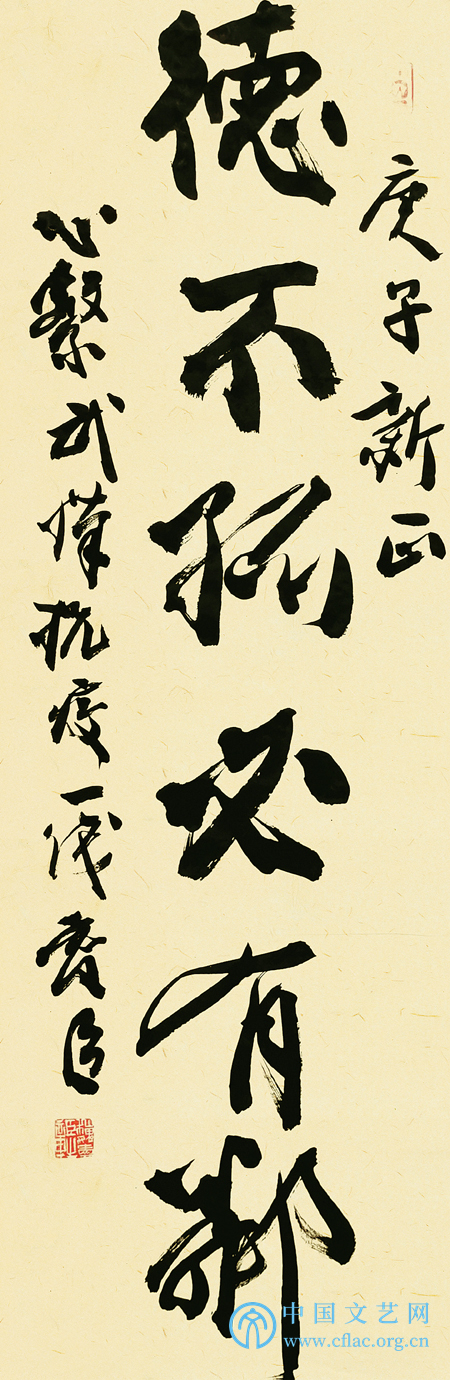 庚子新正
德不孤必有鄰
心繫武漢抗疫一
中国文艺网
www.cflac.org.cn